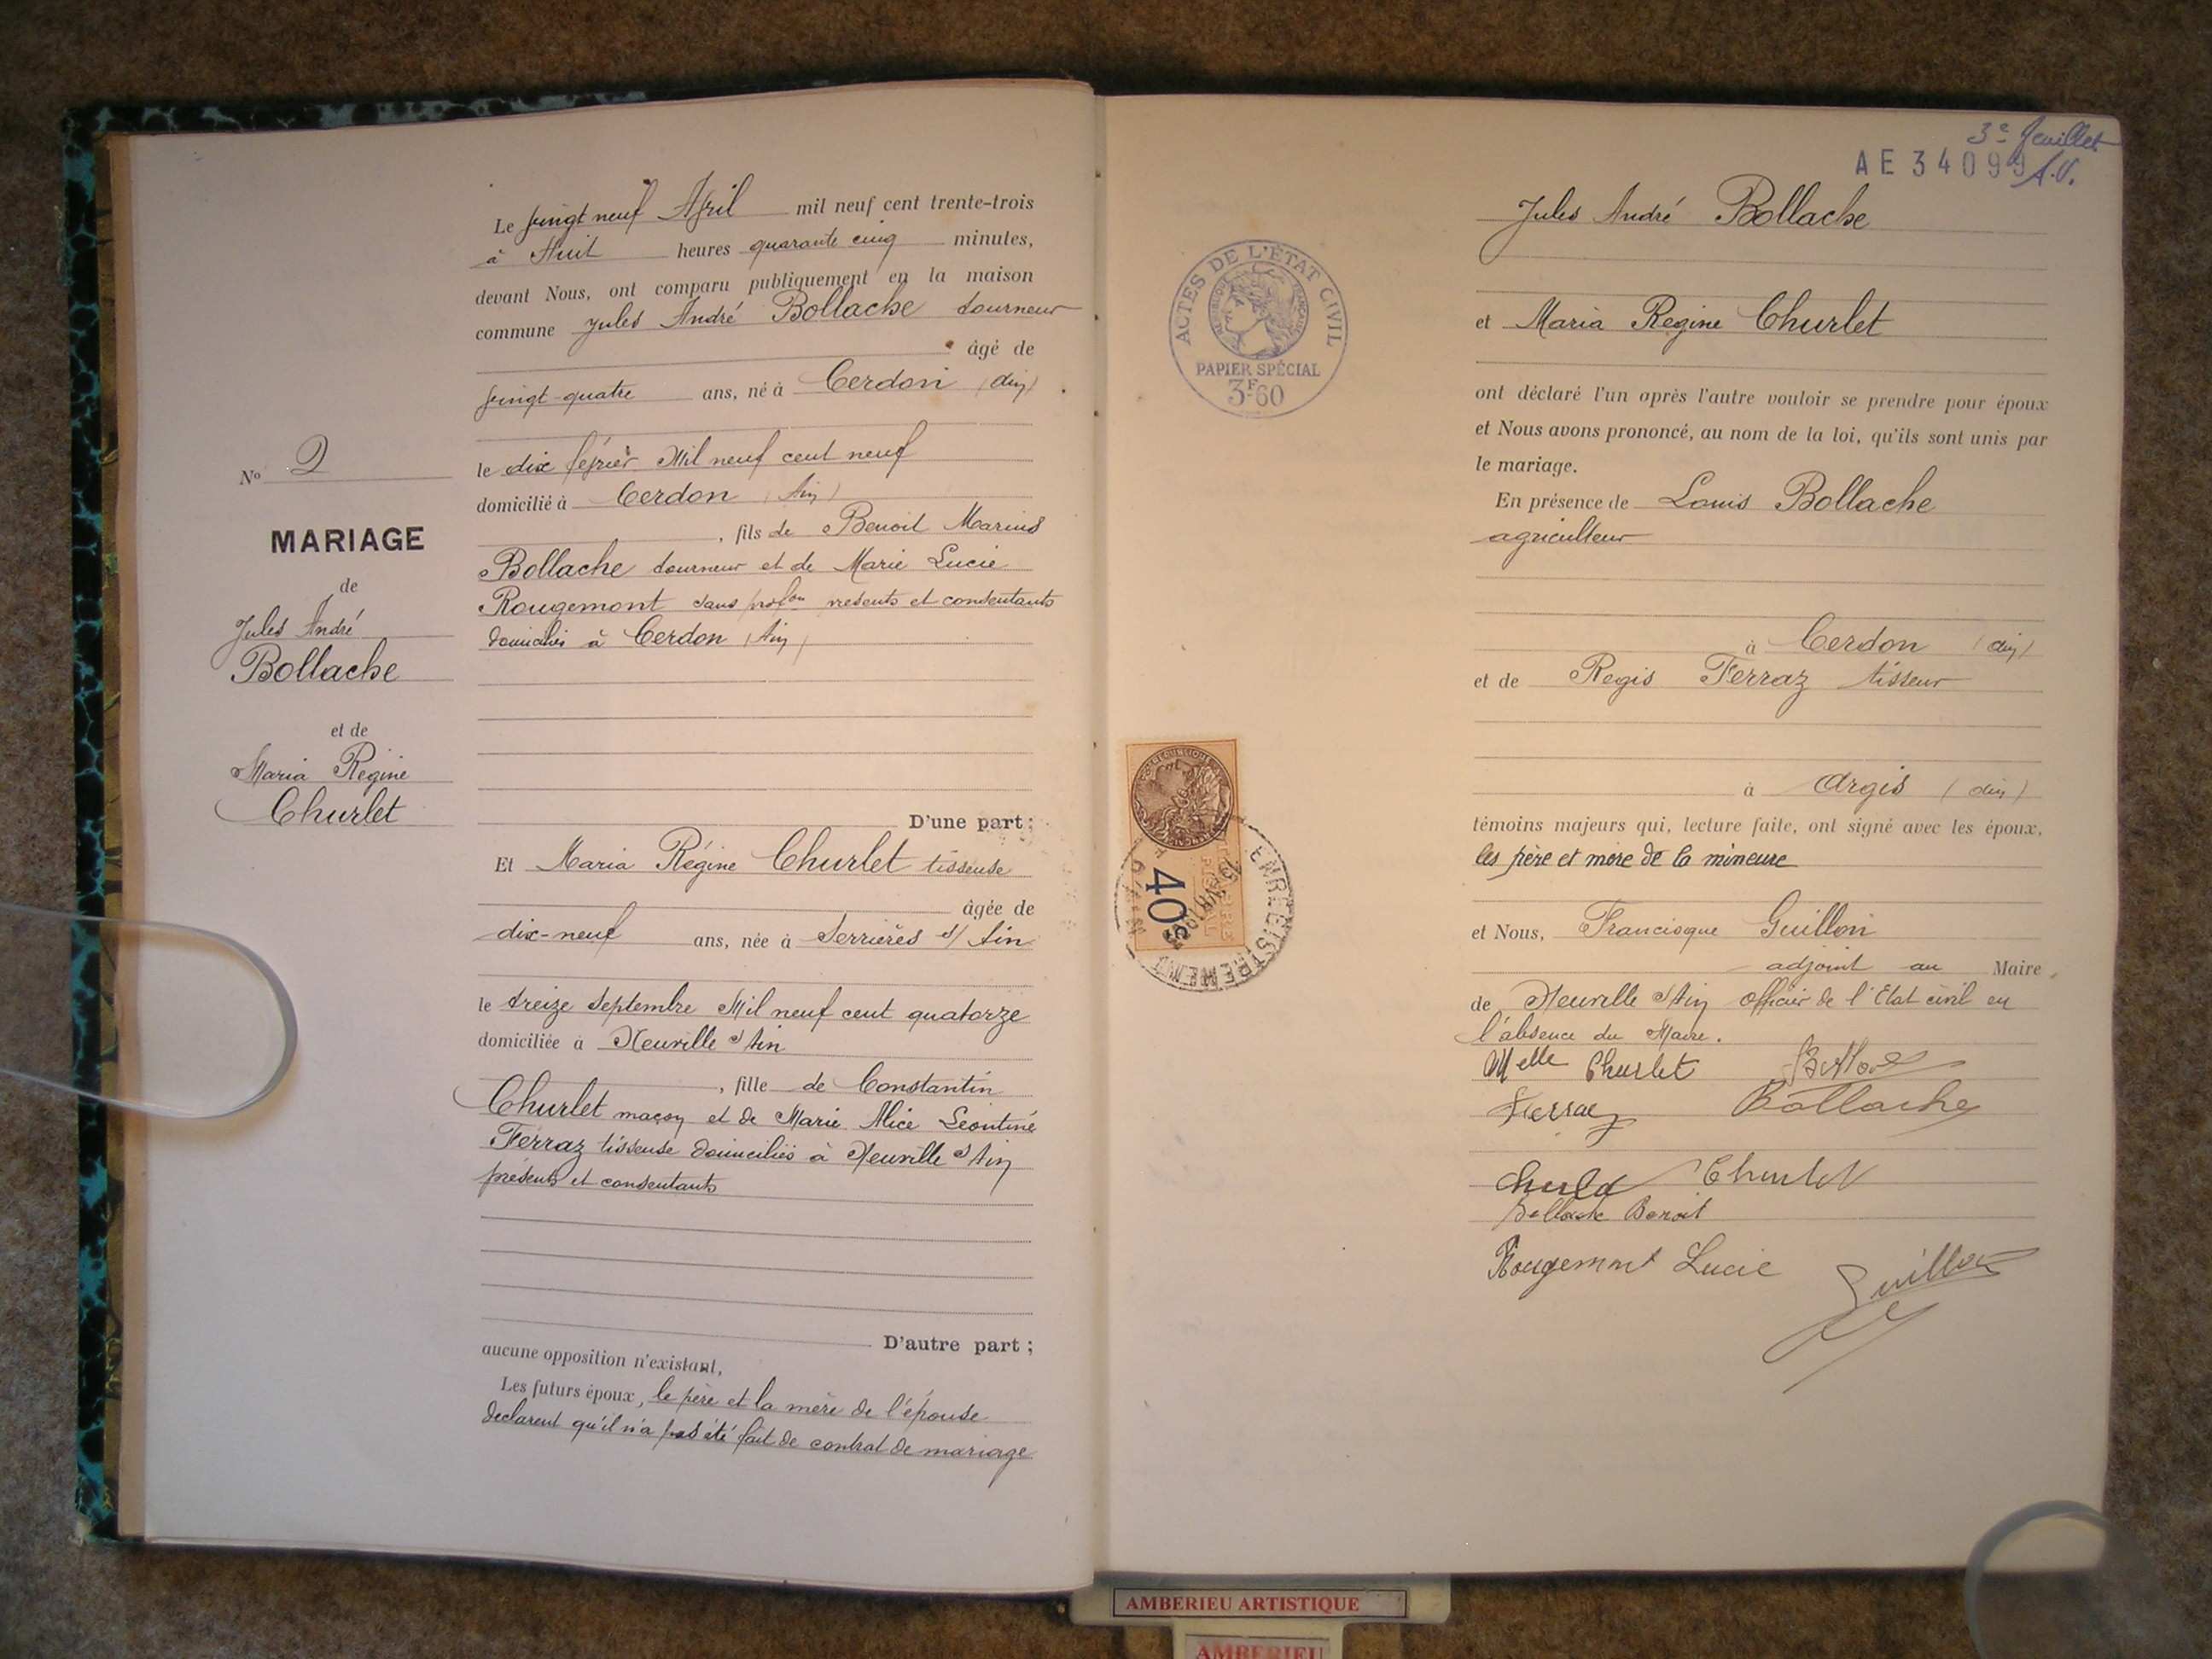 Le vingt neuf Avril mil neuf cent trente-trois
à Huit heures quarante cinq minutes,
devant Nous, ont comparu publiquement en la maison
commune Jules André Bollache tourneur
âgé de
vingt-quatre ans, né à Cerdon (Ain)
le dix février Mil neuf cent neuf
domicilié à Cerdon (Ain)
, fils de Benoit Marius
Bollache tourneur et de Marie Lucie
Rougemont sans profon présents et consentants
domiciliés à Cerdon (Ain)
D'une part ;
Et Maria Régine Churlet tisseuse
âgée de
dix-neuf ans, née à Serrières s/ Ain
le treize Septembre Mil neuf cent quatorze
domiciliée à Neuville s/ Ain
, fille de Constantin
Churlet maçon et de Marie Alice Léontine
Ferraz tisseuse domiciliés à Neuville s/ Ain
présents et consentants
D'autre part ;
aucune opposition n'existant,
Les futurs époux, le père et la mère de l'épouse
déclarent qu'il n'a pas été fait de contrat de mariage
No 2
MARIAGE
de
Jules André
Bollache
et de
Maria Régine
Churlet
3e feuillet
AE 34099 A.V.
ACTES DE L'ÉTAT CIVIL
RÉPUBLIQUE FRANÇAISE
PAPIER SPÉCIAL
3F60
40c
ENREGISTREMENT
Jules André Bollache
et Maria Regine Churlet
ont déclaré l'un après l'autre vouloir se prendre pour époux
et Nous avons prononcé, au nom de la loi, qu'ils sont unis par
le mariage.
En présence de Louis Bollache
agriculteur
à Cerdon (Ain)
et de Regis Ferraz tisseur
à Argis (Ain)
témoins majeurs qui, lecture faite, ont signé avec les époux,
les père et mère de la mineure
et Nous, Francisque Guillon
adjoint au Maire
de Neuville s/ Ain officier de l'Etat civil en
l'absence du Maire.
Melle Churlet
Ferraz Bollache
Churlet Churlet
Bollache Benoit
Rougemont Lucie Guillon
AMBERIEU ARTISTIQUE
AMBERIEU